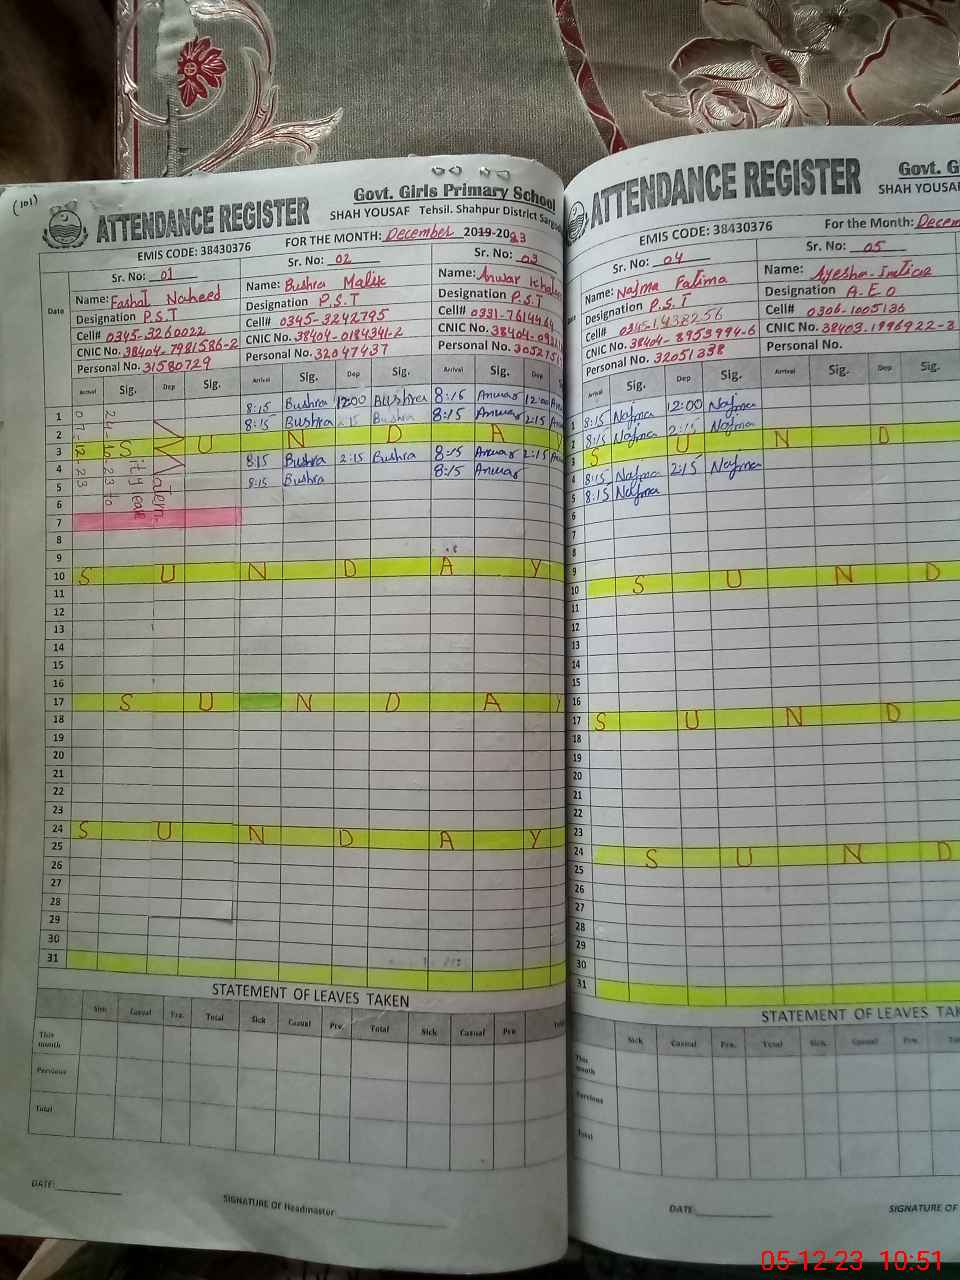 (101)
ATTENDANCE REGISTER
Govt. Girls Primary School
SHAH YOUSAF Tehsil. Shahpur District
EMIS CODE: 38430376
FOR THE MONTH: December 2019-2023
Date
Sr. No: 01
Name: Naheed
Designation P.S.T
Cell# 0345-3260022
CNIC No. 38404-7981586-2
Personal No. 31580729
Sr. No: 02
Name: Bushra Malik
Designation P.S.T
Cell# 0345-3242795
CNIC No. 38404-0184341-2
Personal No. 32047437
Sr. No: 03
Name: Anwar
Designation P.S.T
Cell# 0331-
CNIC No. 38404-
Personal No.
Arrival Sig. Dep Sig. Arrival Sig. Dep Sig. Arrival Sig. Dep
1 8:15 Bushra 12:00 Bushra 8:15 Anwar 12:00
2 8:15 Bushra 2:15 Bushra 8:15 Anwar 2:15
3 S U N D A Y
4 8:15 Bushra 2:15 Bushra 8:15 Anwar 2:15
5 8:15 Bushra 8:15 Anwar
6
7
8
9
10 S U N D A Y
11
12
13
14
15
16
17 S U N D A Y
18
19
20
21
22
23
24 S U N D A Y
25
26
27
28
29
30
31
STATEMENT OF LEAVES TAKEN
Sick Casual Prv. Total Sick Casual Prv. Total Sick Casual Prv
This month
Pervious
Total
DATE:
SIGNATURE OF Headmaster
ATTENDANCE REGISTER
Govt. G
SHAH YOUSAF
EMIS CODE: 38430376
For the Month: Decem
Sr. No: 04
Name: Najma Fatima
Designation P.S.T
Cell# 0345-1438256
CNIC No. 38404-8953994-6
Personal No. 32051338
Sr. No: 05
Name: Ayesha
Designation A.E.O
Cell# 0306-1005136
CNIC No. 38403-1996922-
Personal No.
Arrival Sig. Dep Sig. Arrival Sig. Dep Sig.
1 8:15 Najma 12:00 Najma
2 8:15 Najma 2:15 Najma
3 S U N D
4 8:15 Najma 2:15 Najma
5 8:15 Najma
6
7
8
9
10 S U N D
11
12
13
14
15
16
17 S U N D
18
19
20
21
22
23
24 S U N D
25
26
27
28
29
30
31
STATEMENT OF LEAVES TAK
Sick Casual Prv. Total Sick Casual Prv.
This month
Pervious
Total
DATE:
SIGNATURE OF
05-12-23 10:51